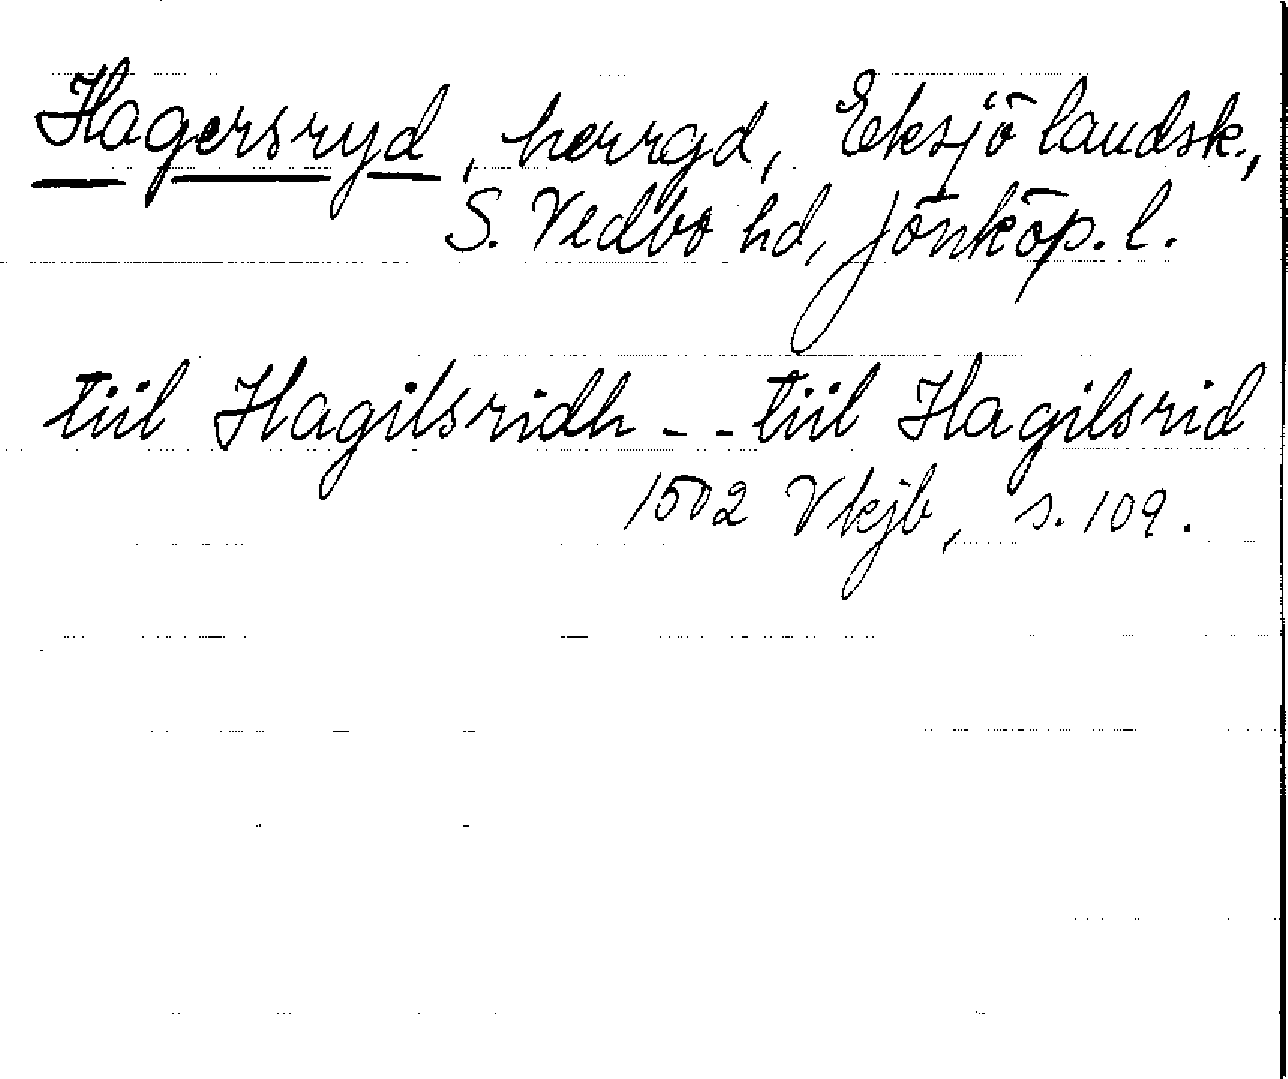 Hagersryd, herrgd, Eksjö landsk.,
S. Vedbo hd, Jönköp. l.
tiil Hagilsridh - - tiil Hagilsrid
1502 Vkjb, s. 109.